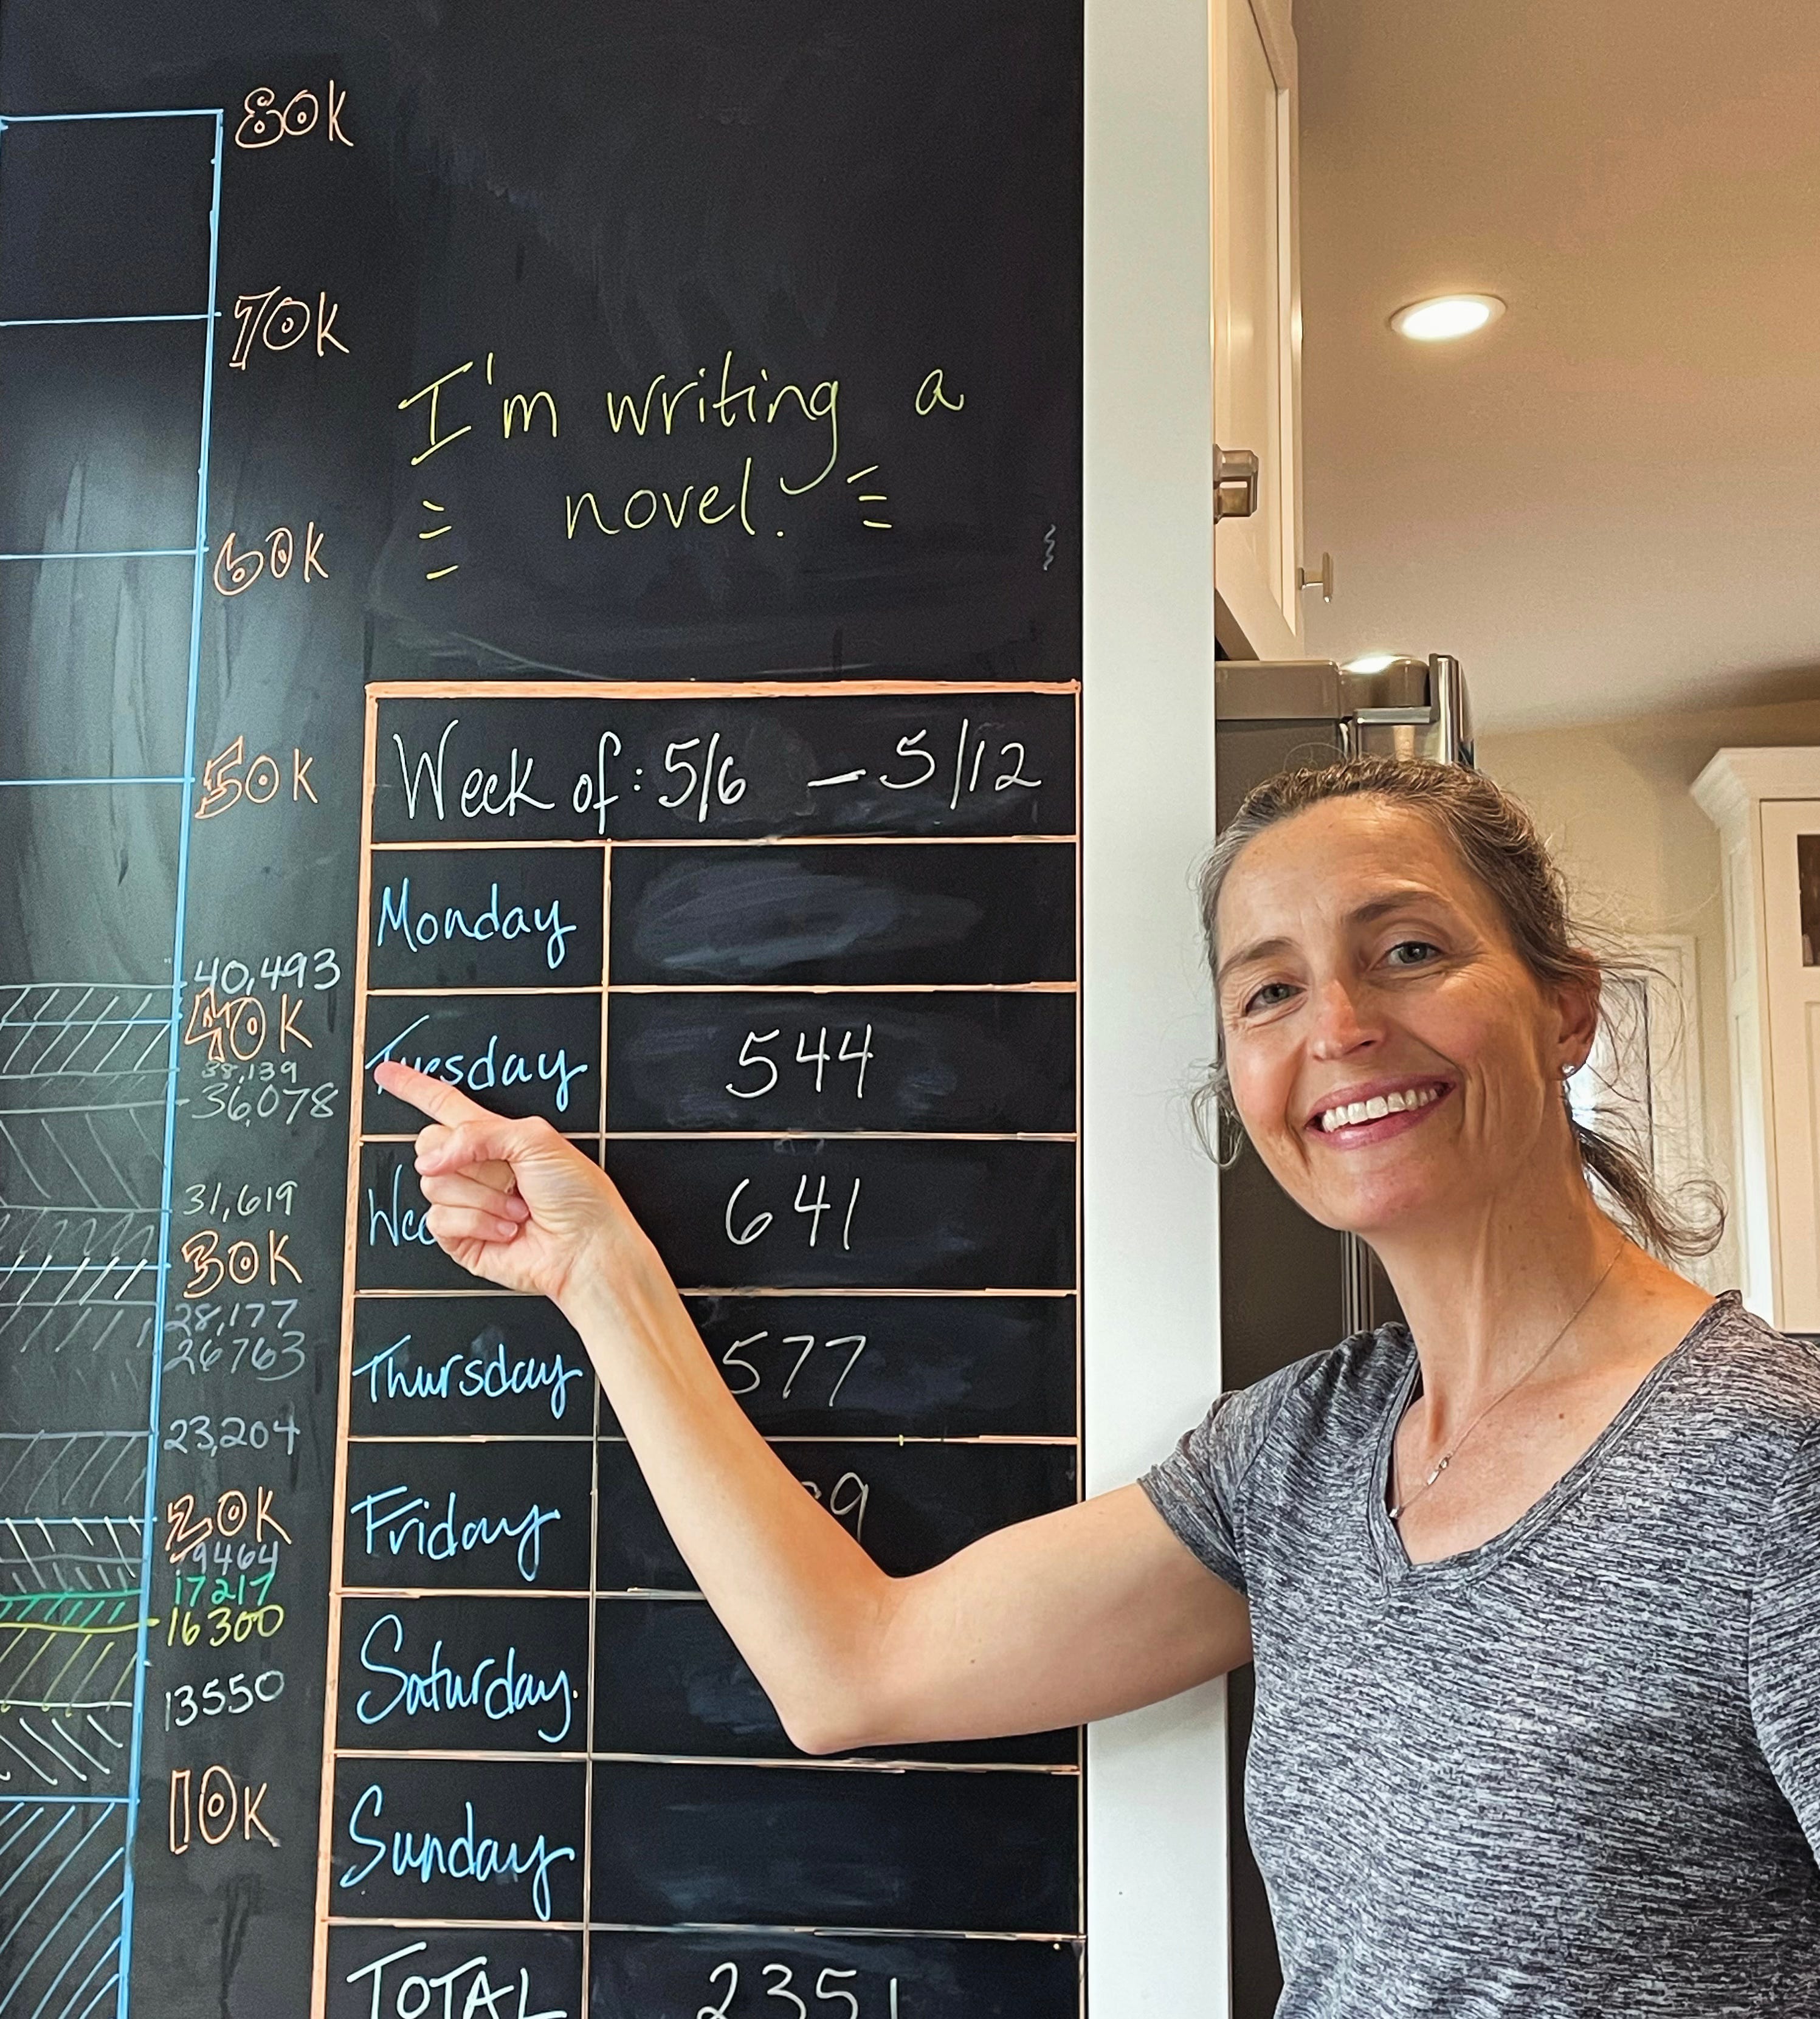 80K
70K
60K
50K
40,493
40K
38,139
36,078
31,619
30K
28,177
26763
23,204
20K
19464
17217
16300
13550
10K
I'm writing a
novel!
Week of: 5/6 – 5/12
Monday
Tuesday 544
641
Thursday 577
Friday
Saturday.
Sunday
TOTAL 2351